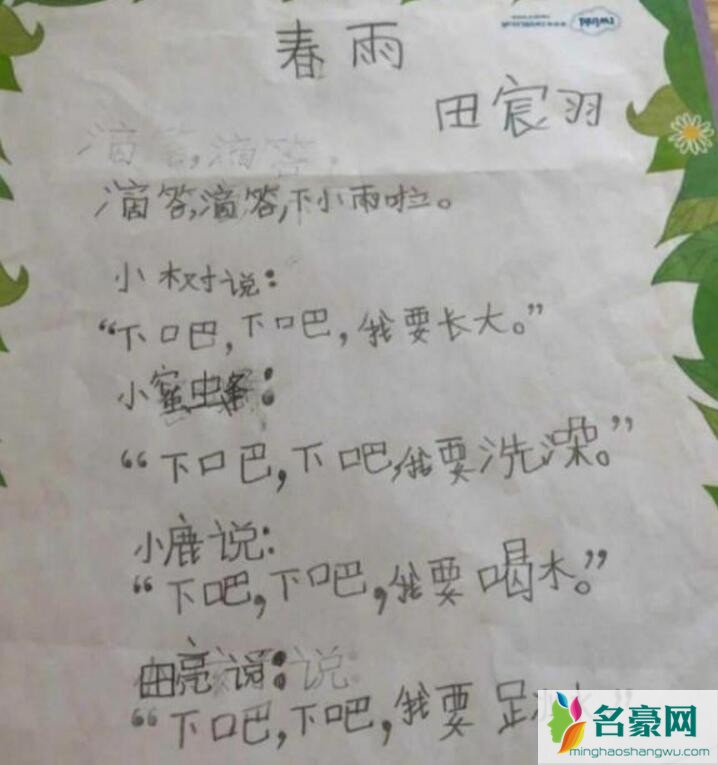 twinkl
春雨
田宸羽
滴答,滴答,
滴答,滴答,下小雨啦。
小树说:
“下吧,下吧,我要长大。”
小蜜蜂:
“下吧,下吧,我要洗澡。”
小鹿说:
“下吧,下吧,我要喝水。”
田亮说:说:
“下吧,下吧,我要
名豪网
minghaoshangwu.com